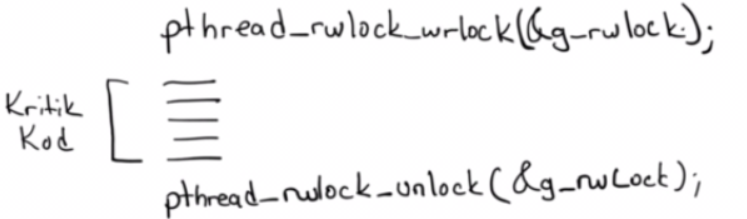 pthread_rwlock_wrlock(&g_rwlock);
Kritik
Kod
pthread_rwlock_unlock(&g_rwLock);